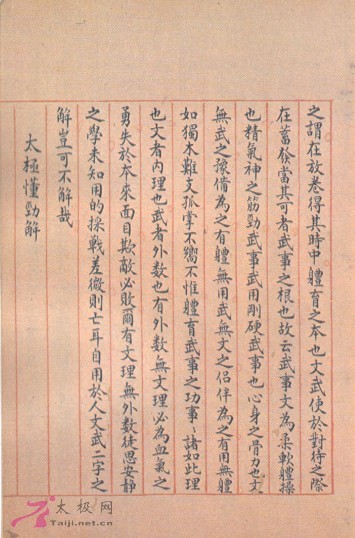 之謂在放卷得其時中體育之本也文武使於對待之際
在蓄發當其可者武事之根也故云武事文為柔軟體操
也精氣神之筋勁武事武用剛硬武事也心身之骨力也文
無武之豫備為之有體無用武無文之侶伴為之有用無體
如獨木難支孤掌不響不惟體育武事之功事〻諸如此理
也文者內理也武者外數也有外數無文理必為血氣之
勇失於本來面目欺敵必敗爾有文理無外數徒思安靜
之學未知用的採戰差微則亡耳自用於人文武二字之
解豈可不解哉
太極懂勁解
太极网
Taiji.net.cn